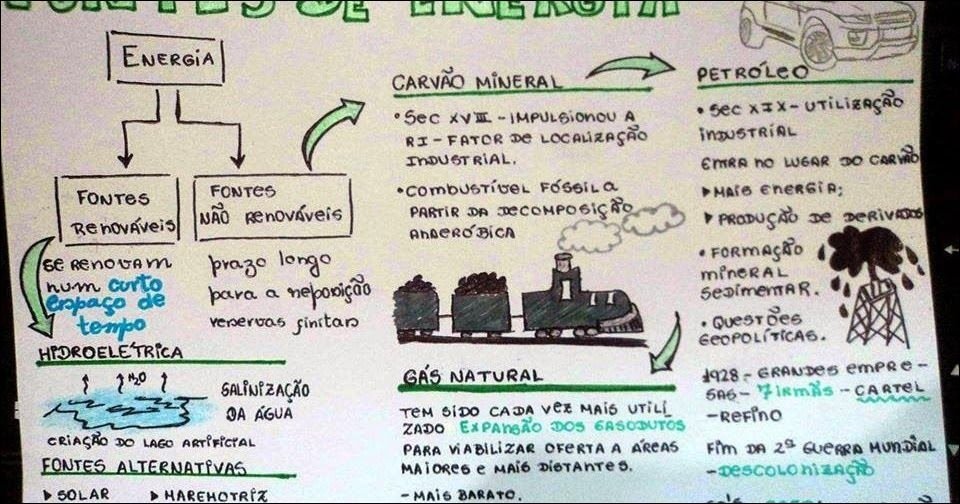 FONTES DE ENERGIA
ENERGIA
FONTES
RENOVÁVEIS
FONTES
NÃO RENOVÁVEIS
SE RENOVAM
num curto
espaço de
tempo
prazo longo
para a reposição
reservas finitas
HIDROELÉTRICA
H2O
SALINIZAÇÃO
DA ÁGUA
CRIAÇÃO DO LAGO ARTIFICIAL
FONTES ALTERNATIVAS
▸ SOLAR
▸ MAREMOTRIZ
CARVÃO MINERAL
• SEC XVIII - IMPULSIONOU A
RI - FATOR DE LOCALIZAÇÃO
INDUSTRIAL.
• COMBUSTÍVEL FÓSSIL A
PARTIR DA DECOMPOSIÇÃO
ANAERÓBICA
GÁS NATURAL
TEM SIDO CADA VEZ MAIS UTILI
ZADO EXPANSÃO DOS GASODUTOS
PARA VIABILIZAR OFERTA A ÁREAS
MAIORES E MAIS DISTANTES.
- MAIS BARATO.
PETRÓLEO
• SEC XIX - UTILIZAÇÃO
INDUSTRIAL
ENTRA NO LUGAR DO CARVÃO
▸ MAIS ENERGIA;
▸ PRODUÇÃO DE DERIVADOS
• FORMAÇÃO
MINERAL
SEDIMENTAR.
• QUESTÕES
GEOPOLÍTICAS.
1928 - GRANDES EMPRE-
SAS - 7 IRMÃS - CARTEL
- REFINO
FIM DA 2ª GUERRA MUNDIAL
- DESCOLONIZAÇÃO